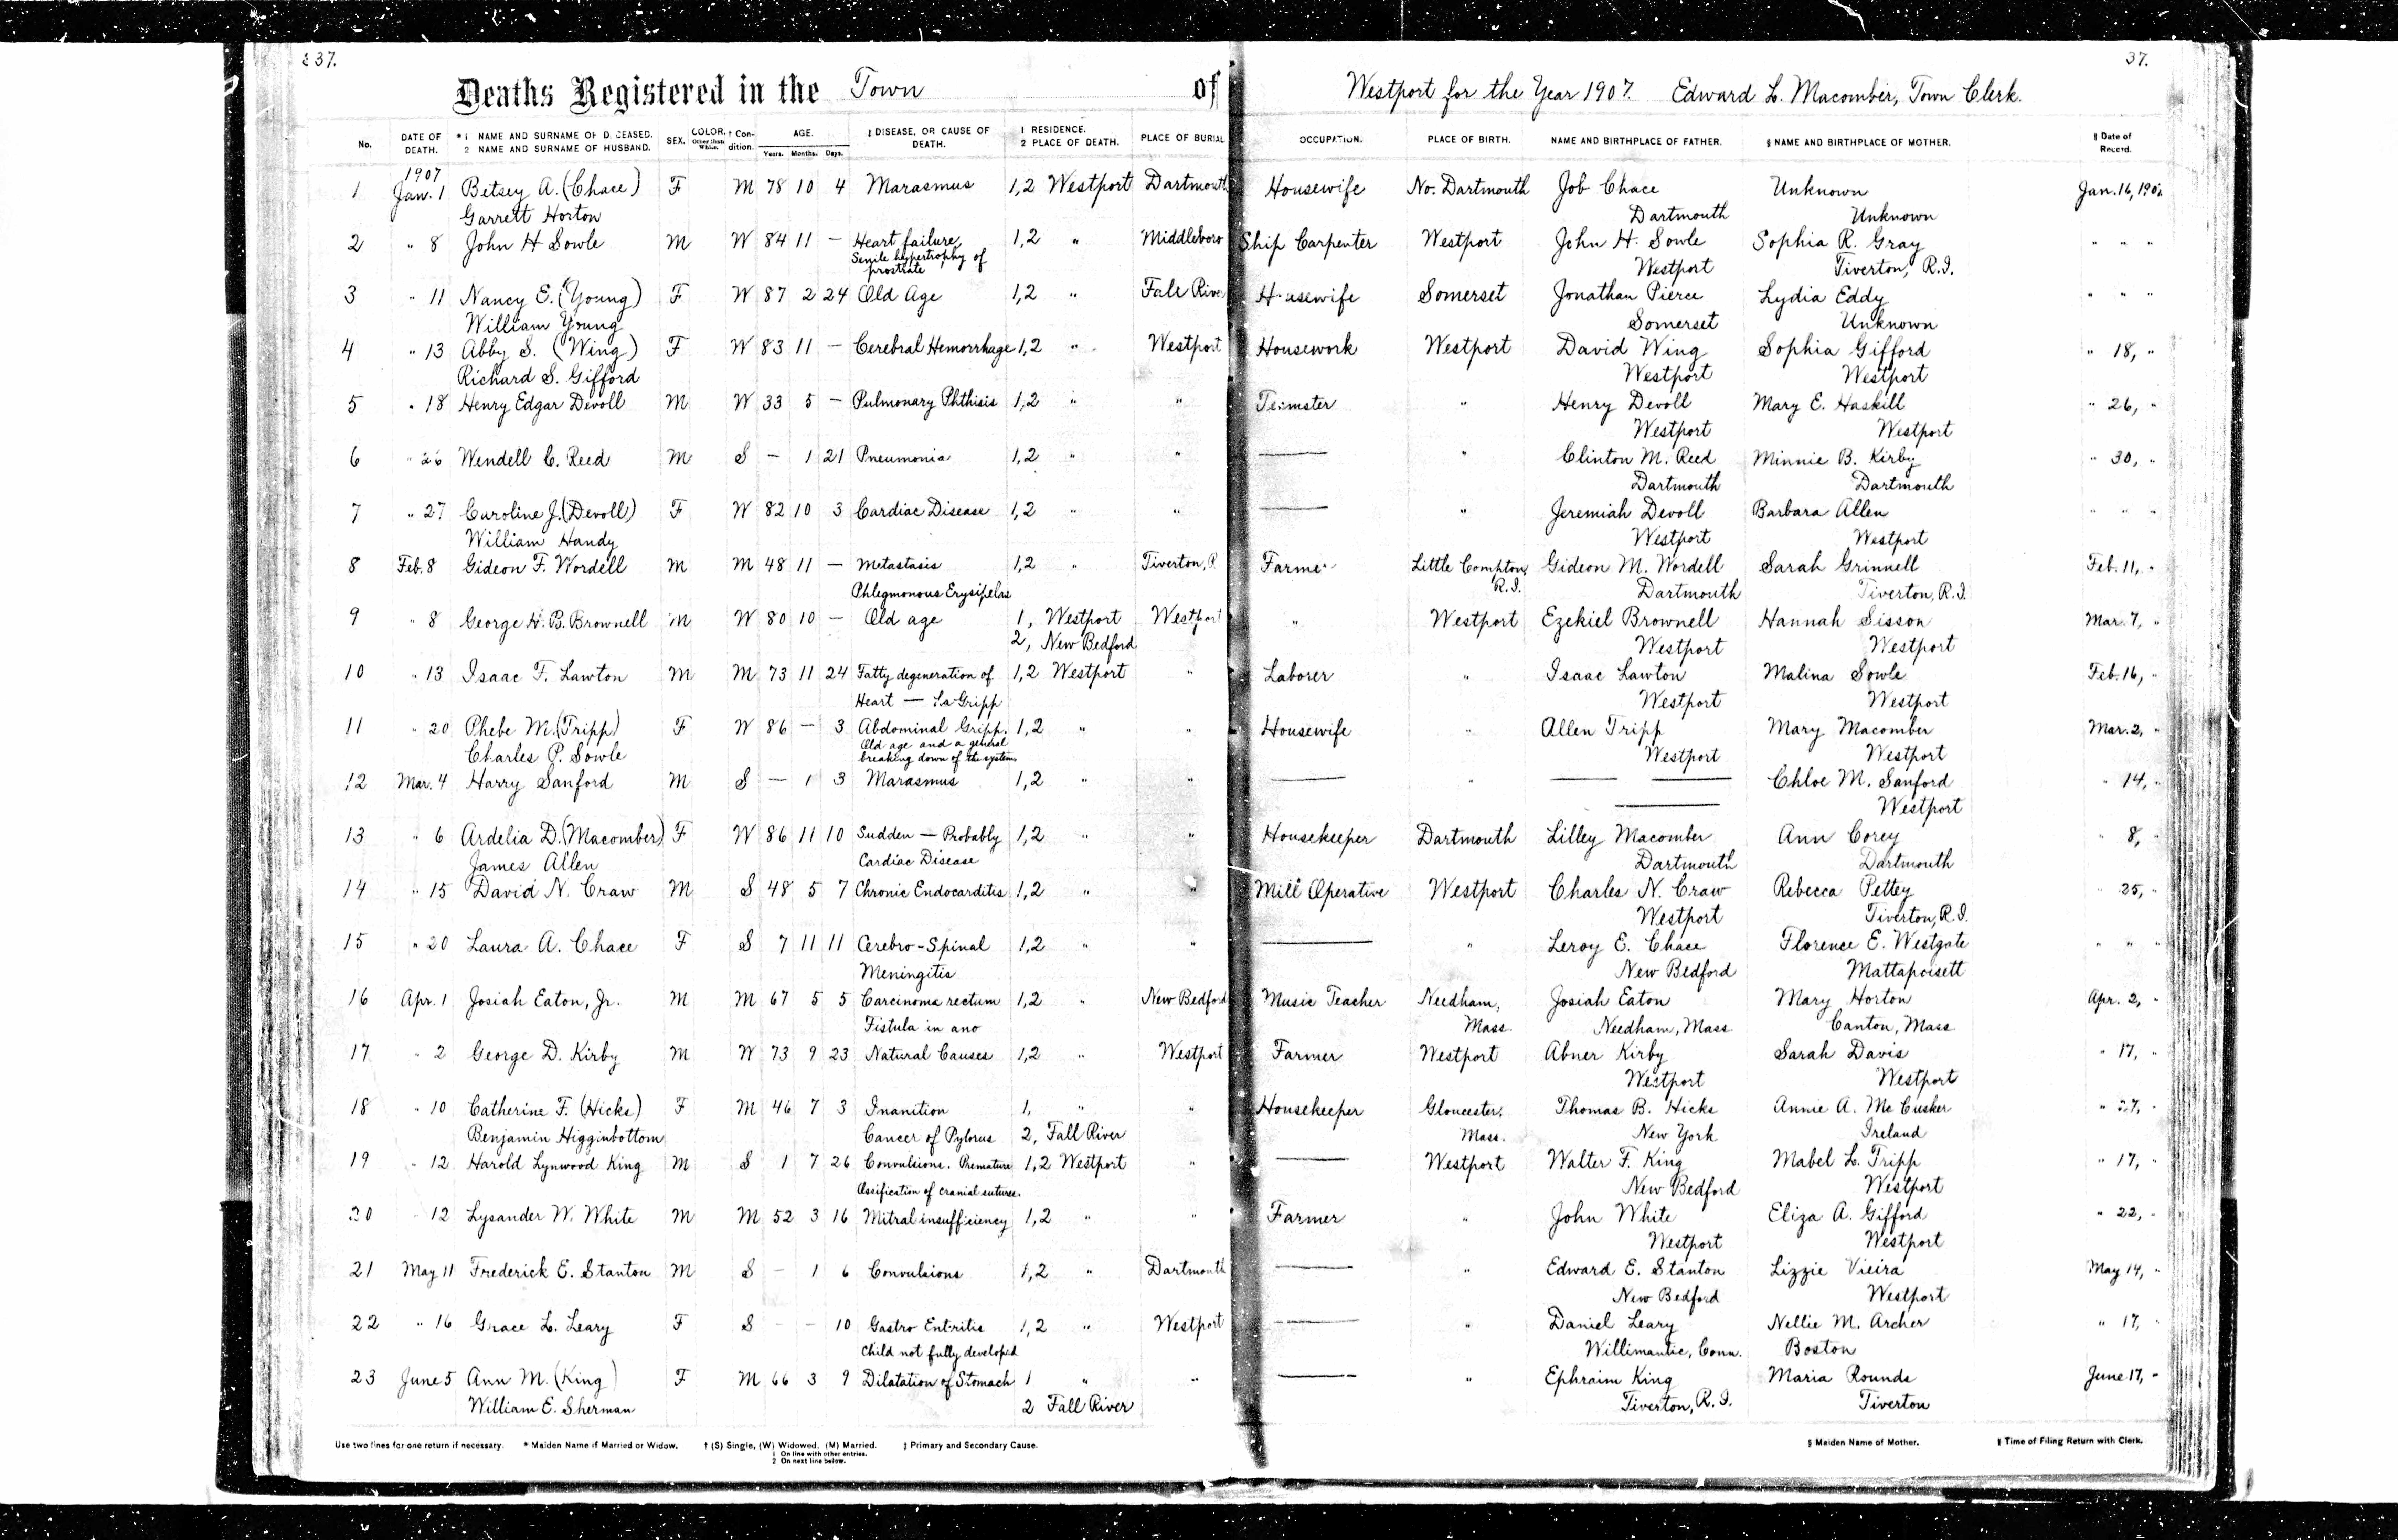 237.
37.
Deaths Registered in the Town of Westport for the Year 1907. Edward L. Macomber, Town Clerk.
No. DATE OF DEATH. * 1 NAME AND SURNAME OF DECEASED. 2 NAME AND SURNAME OF HUSBAND. SEX. COLOR. Other than White. † Condition. AGE. Years. Months. Days. ‡ DISEASE, OR CAUSE OF DEATH. 1 RESIDENCE. 2 PLACE OF DEATH. PLACE OF BURIAL OCCUPATION. PLACE OF BIRTH. NAME AND BIRTHPLACE OF FATHER. § NAME AND BIRTHPLACE OF MOTHER. ‖ Date of Record.
1907
1 Jan. 1 Betsey A. (Chace) F M 78 10 4 Marasmus 1,2 Westport Dartmouth Housewife No. Dartmouth Job Chace Unknown Jan. 16, 190
Garrett Horton Dartmouth Unknown
2 " 8 John H Sowle M W 84 11 — Heart failure, 1,2 " Middleboro Ship Carpenter Westport John H. Sowle Sophia R. Gray " " "
Senile hypertrophy of prostrate Westport Tiverton, R.I.
3 " 11 Nancy E. (Young) F W 87 2 24 Old Age 1,2 " Fall Rive Housewife Somerset Jonathan Pierce Lydia Eddy " " "
William Young Somerset Unknown
4 " 13 Abby S. (Wing) F W 83 11 — Cerebral Hemorrhage 1,2 " Westport Housework Westport David Wing Sophia Gifford " 18, "
Richard S. Gifford Westport Westport
5 " 18 Henry Edgar Devoll M W 33 5 — Pulmonary Phthisis 1,2 " " Teamster " Henry Devoll Mary E. Haskill " 26, "
Westport Westport
6 " 26 Wendell C. Reed M S — 1 21 Pneumonia 1,2 " " — " Clinton M. Reed Minnie B. Kirby " 30, "
Dartmouth Dartmouth
7 " 27 Caroline J. (Devoll) F W 82 10 3 Cardiac Disease 1,2 " " — " Jeremiah Devoll Barbara Allen " " "
William Handy Westport Westport
8 Feb. 8 Gideon F. Wordell M M 48 11 — Metastasis 1,2 " Tiverton, R Farmer Little Compton, Gideon M. Wordell Sarah Grinnell Feb. 11, "
Phlegmonous Erysipelas R.I. Dartmouth Tiverton, R.I.
9 " 8 George H. B. Brownell M W 80 10 — Old age 1, Westport Westport " Westport Ezekiel Brownell Hannah Sisson Mar. 7, "
2, New Bedford Westport Westport
10 " 13 Isaac F. Lawton M M 73 11 24 Fatty degeneration of 1,2 Westport " Laborer " Isaac Lawton Malina Sowle Feb. 16, "
Heart — La Gripp Westport Westport
11 " 20 Phebe M. (Tripp) F W 86 — 3 Abdominal Gripp. 1,2 " " Housewife " Allen Tripp Mary Macomber Mar. 2, "
Charles P. Sowle Old age and a general breaking down of the system. Westport Westport
12 Mar. 4 Harry Sanford M S — 1 3 Marasmus 1,2 " " — " — — Chloe M. Sanford " 14, "
— Westport
13 " 6 Ardelia D. (Macomber) F W 86 11 10 Sudden — Probably 1,2 " " Housekeeper Dartmouth Lilley Macomber Ann Corey " 8, "
James Allen Cardiac Disease Dartmouth Dartmouth
14 " 15 David N. Craw M S 48 5 7 Chronic Endocarditis 1,2 " " Mill Operative Westport Charles N. Craw Rebecca Pettey " 25, "
Westport Tiverton, R.I.
15 " 20 Laura A. Chace F S 7 11 11 Cerebro-Spinal 1,2 " " — " Leroy E. Chace Florence E. Westgate " " "
Meningitis New Bedford Mattapoisett
16 Apr. 1 Josiah Eaton, Jr. M M 67 5 5 Carcinoma rectum 1,2 " New Bedford Music Teacher Needham, Josiah Eaton Mary Horton Apr. 2, "
Fistula in ano Mass. Needham, Mass Canton, Mass
17 " 2 George D. Kirby M W 73 9 23 Natural Causes 1,2 " Westport Farmer Westport Abner Kirby Sarah Davis " 17, "
Westport Westport
18 " 10 Catherine F. (Hicks) F M 46 7 3 Inanition 1, " " Housekeeper Gloucester, Thomas B. Hicks Annie A. McCusker " 27, "
Benjamin Higginbottom Cancer of Pylorus 2, Fall River Mass. New York Ireland
19 " 12 Harold Lynwood King M S 1 7 26 Convulsions. Premature 1,2 Westport " — Westport Walter F. King Mabel L. Tripp " 17, "
Ossification of cranial sutures. New Bedford Westport
20 " 12 Lysander W. White M M 52 3 16 Mitral insufficiency 1,2 " " Farmer " John White Eliza A. Gifford " 22, "
Westport Westport
21 May 11 Frederick E. Stanton M S — 1 6 Convulsions 1,2 " Dartmouth — " Edward E. Stanton Lizzie Vieira May 14, "
New Bedford Westport
22 " 16 Grace L. Leary F S — — 10 Gastro Entritis 1,2 " Westport — " Daniel Leary Nellie M. Archer " 17, "
Child not fully developed Willimantic, Conn. Boston
23 June 5 Ann M. (King) F M 66 3 9 Dilatation of Stomach 1 " " — " Ephraim King Maria Rounds June 17, "
William E. Sherman 2 Fall River Tiverton, R.I. Tiverton
Use two lines for one return if necessary. * Maiden Name if Married or Widow. † (S) Single, (W) Widowed, (M) Married. ‡ Primary and Secondary Cause. § Maiden Name of Mother. ‖ Time of Filing Return with Clerk.
1 On line with other entries.
2 On next line below.